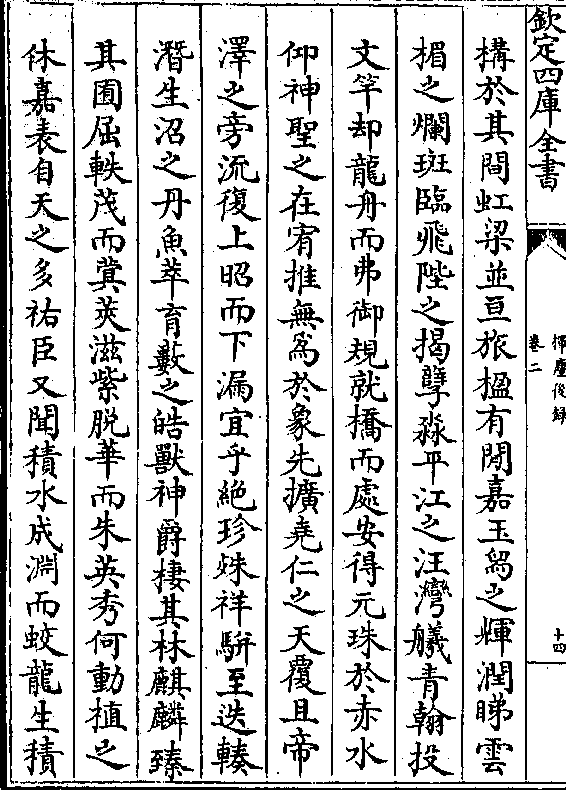 欽定四庫全書
揮麈後録
卷二
十四
構於其間虹梁並亘旅楹有閑嘉玉舄之輝潤睇雲
楣之爛斑臨飛陛之揭孽淼平江之汪灣艤青翰投
文竿却龍舟而弗御規就橋而處安得元珠於赤水
仰神聖之在宥推無爲於象先擴堯仁之天覆且帝
澤之旁流復上昭而下漏宜乎絶珍殊祥駢至迭輳
潛生沼之丹魚萃育藪之皓獸神爵棲其林麒麟臻
其囿屈軼茂而蓂莢滋紫脱華而朱英秀何動植之
休嘉表自天之多祐臣又聞積水成淵而蛟龍生積